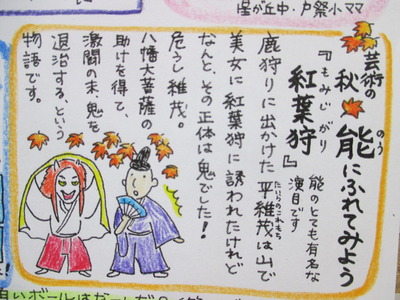 星が丘中・戸祭小ママ
芸術の
秋 能にふれてみよう
のう
『紅葉狩』
もみじがり
能のとても有名な
演目です
鹿狩りに出かけた平維茂は山で
たいらのこれもち
美女に紅葉狩に誘われたけれど
なんと、その正体は鬼でした!
危うし維茂。
八幡大菩薩の
助けを得て、
激闘の末、鬼を
退治する、という
物語です。